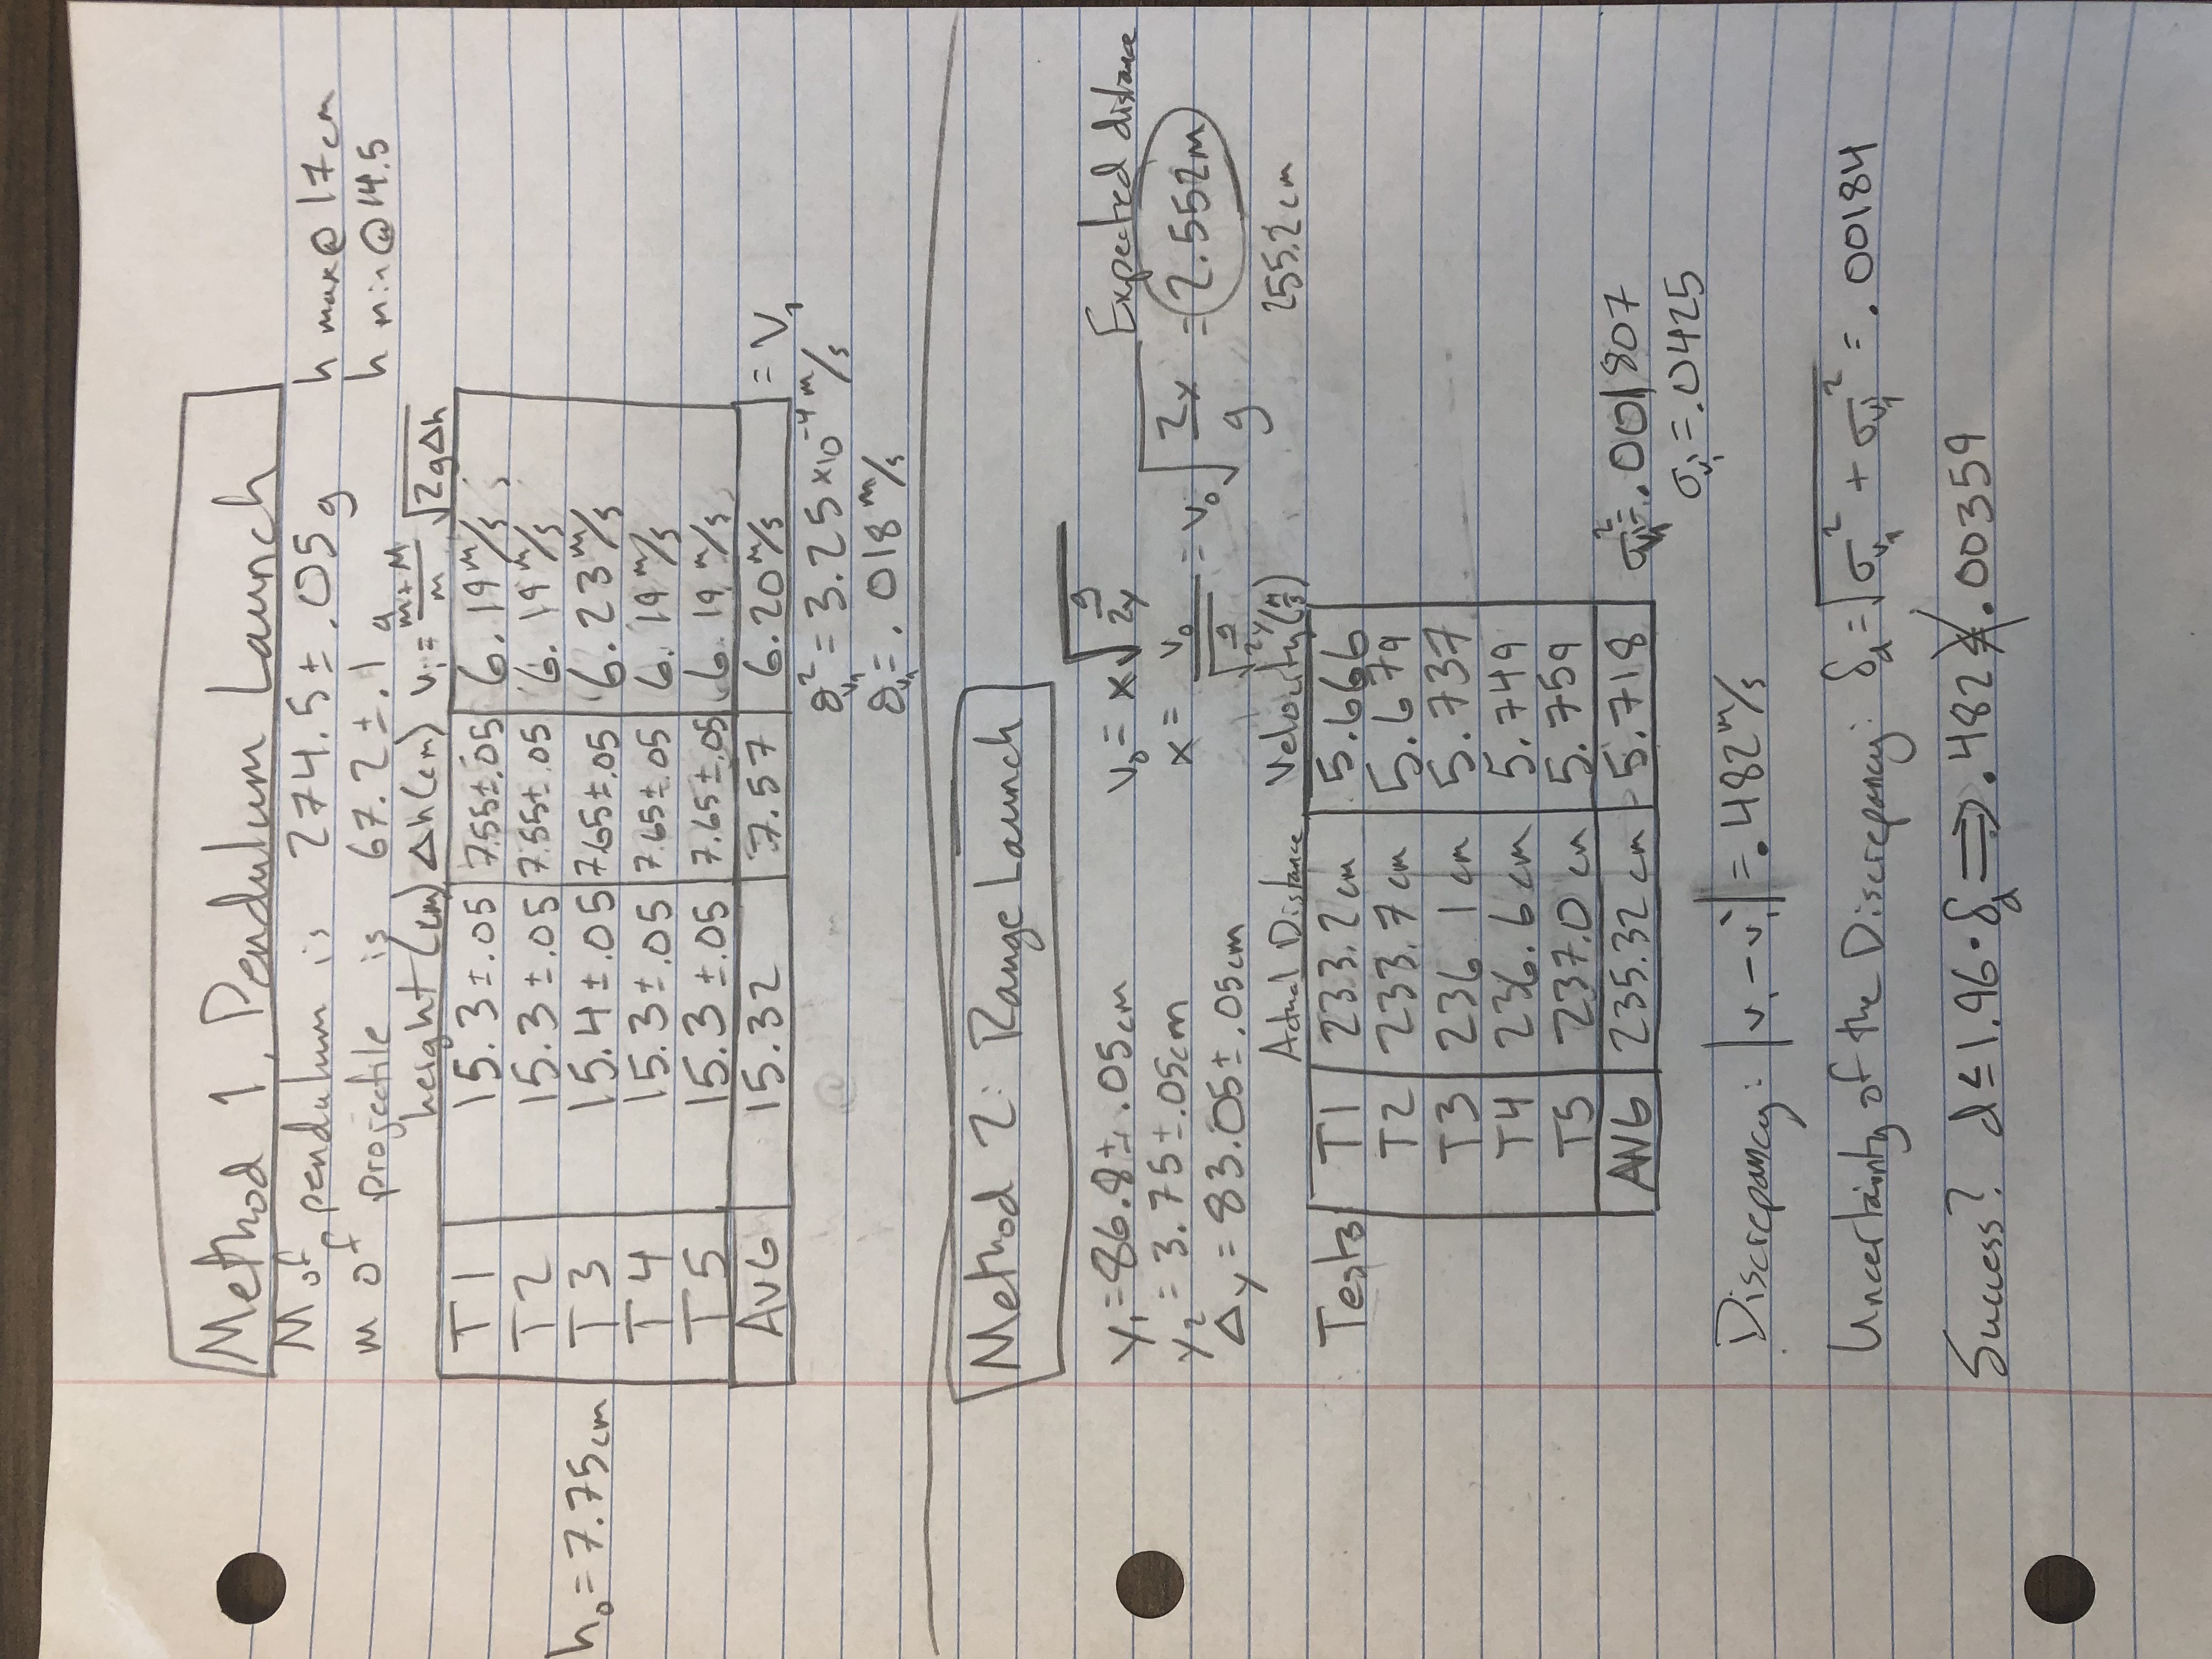 Method 1, Pendulum Launch
M of pendulum is 274.5 ± .05 g h max @ 17 cm
m of projectile is 67.2 ± .1 g h min @ 14.5
height (cm) Δh (cm) v₁ = (m+M)/m √(2gΔh)
T1 15.3 ± .05 7.55 ± .05 6.19 m/s
T2 15.3 ± .05 7.55 ± .05 6.19 m/s
h₀ = 7.75 cm T3 15.4 ± .05 7.65 ± .05 6.23 m/s
T4 15.3 ± .05 7.65 ± .05 6.19 m/s
T5 15.3 ± .05 7.65 ± .05 6.19 m/s
AVG 15.32 7.57 6.20 m/s = V₁
∂²v₁ = 3.25 × 10⁻⁴ m/s
∂v₁ = .018 m/s
Method 2: Range Launch
y₁ = 86.8 ± .05 cm v₀ = x√(g/2y) Expected distance
y₂ = 3.75 ± .05 cm x = v₀/√(g/2y) = v₀√(2y/g) = 2.552 m
Δy = 83.05 ± .05 cm
255.2 cm
Actual Distance Velocity (m/s)
Tests T1 233.2 cm 5.666
T2 233.7 cm 5.679
T3 236.1 cm 5.737
T4 236.6 cm 5.749
T5 237.0 cm 5.759
AVG 235.32 cm 5.718 σ²v₁' = .001807
σv₁' = .0425
Discrepancy: |v₁ - v₁'| = .482 m/s
Uncertainty of the Discrepancy: δd = √(σv₁² + σv₁'²) = .00184
Success? d ≤ 1.96 · δd ⟹ .482 ≰ .00359